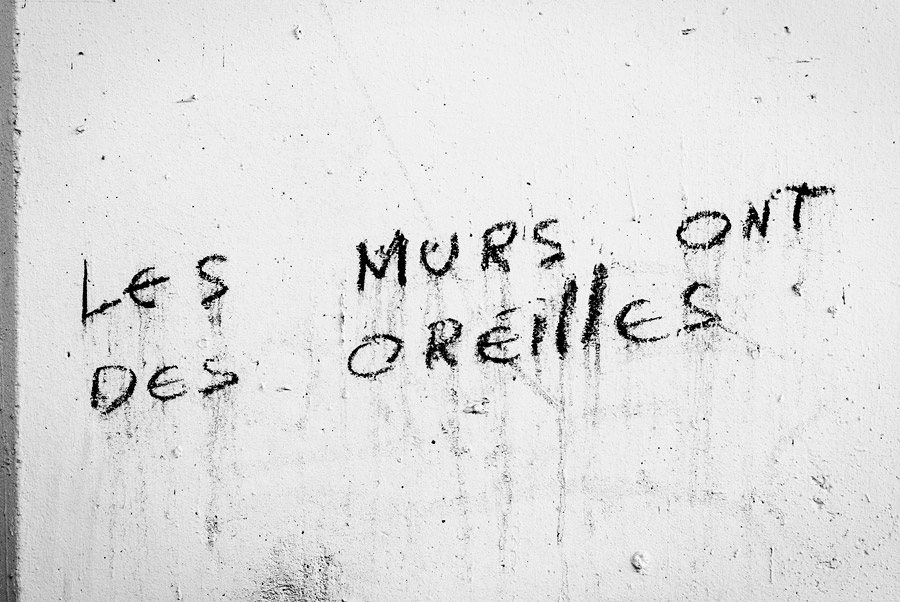 LES MURS ONT
DES OREILLES